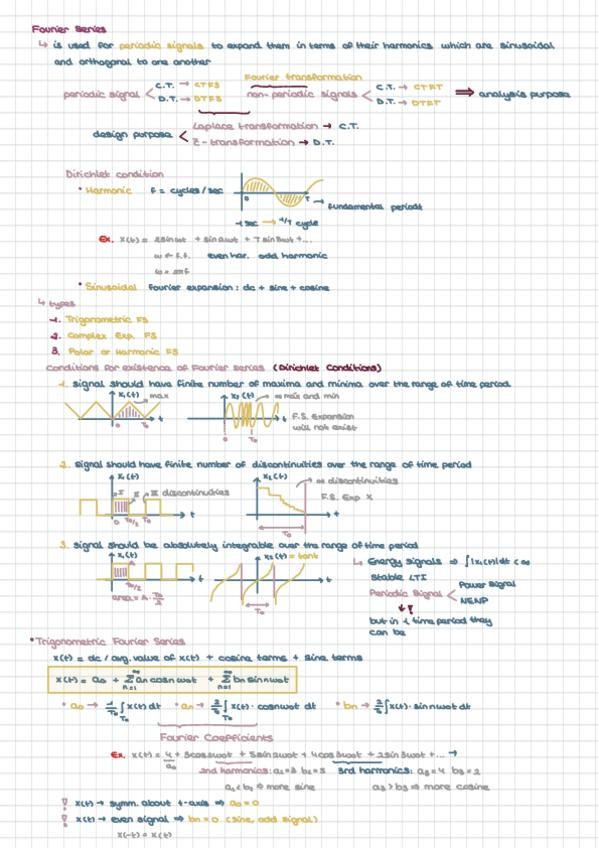 Fourier Series
↳ is used for periodic signals to expand them in terms of their harmonics which are sinusoidal
and orthogonal to one another
Fourier transformation
periodic signal < C.T. → CTFS non-periodic signals < C.T. → CTFT ⟹ analysis purpose
D.T. → DTFS D.T. → DTFT
design purpose < Laplace transformation → C.T.
Z-transformation → D.T.
Dirichlet condition
• Harmonic f = cycles/sec
0 T → fundamental period
1 sec → 1/T cycle
Ex. x(t) = 2sinωt + sinωt + 7sin3ωt+...
ω = f.f. even har. odd harmonic
ω = 2πf
• Sinusoidal Fourier expansion: dc + sine + cosine
↳ types
1. Trigonometric FS
2. Complex Exp. FS
3. Polar or Harmonic FS
Conditions for existence of Fourier series (Dirichlet Conditions)
1. signal should have finite number of maxima and minima over the range of time period.
x₁(t) → max x₂(t) → ∞ max and min
t t F.S. Expansion
will not exist
T₀ 0 T₀
2. signal should have finite number of discontinuities over the range of time period
x₁(t) x₂(t) → ∞ discontinuities
I II III discontinuities F.S. Exp X
t t
0 T₀/2 T₀ T₀
3. signal should be absolutely integrable over the range of time period
x₁(t) x₂(t) = tant ↳ Energy signals ⇒ ∫|x₁(t)|dt < ∞
A t t Stable LTI
T₀/2 Periodic Signal < Power Signal
area = A·T₀/2 T₀ NENP
but in 1 time period they
can be
• Trigonometric Fourier Series
x(t) = dc / avg. value of x(t) + cosine terms + sine terms
x(t) = a₀ + Σ aₙcosnω₀t + Σ bₙsinnω₀t
n=1 n=1
• a₀ → 1/T₀ ∫ x(t) dt • aₙ → 2/T₀ ∫ x(t)·cosnω₀t dt • bₙ → 2/T₀ ∫ x(t)·sinnω₀t dt
T₀ T₀
Fourier Coefficients
Ex. x(t) = 4 + 3cos2ω₀t + 5sin2ω₀t + 4cos3ω₀t + 2sin3ω₀t +... →
a₀ 2nd harmonics: a₂=3 b₂=5 3rd harmonics: a₃=4 b₃=2
a₂<b₂ ⇒ more sine a₃>b₃ ⇒ more cosine
! x(t) → symm. about t-axis ⇒ a₀=0
! x(t) → even signal ⇒ bₙ=0 (sine, odd signal)
x(-t) = x(t)